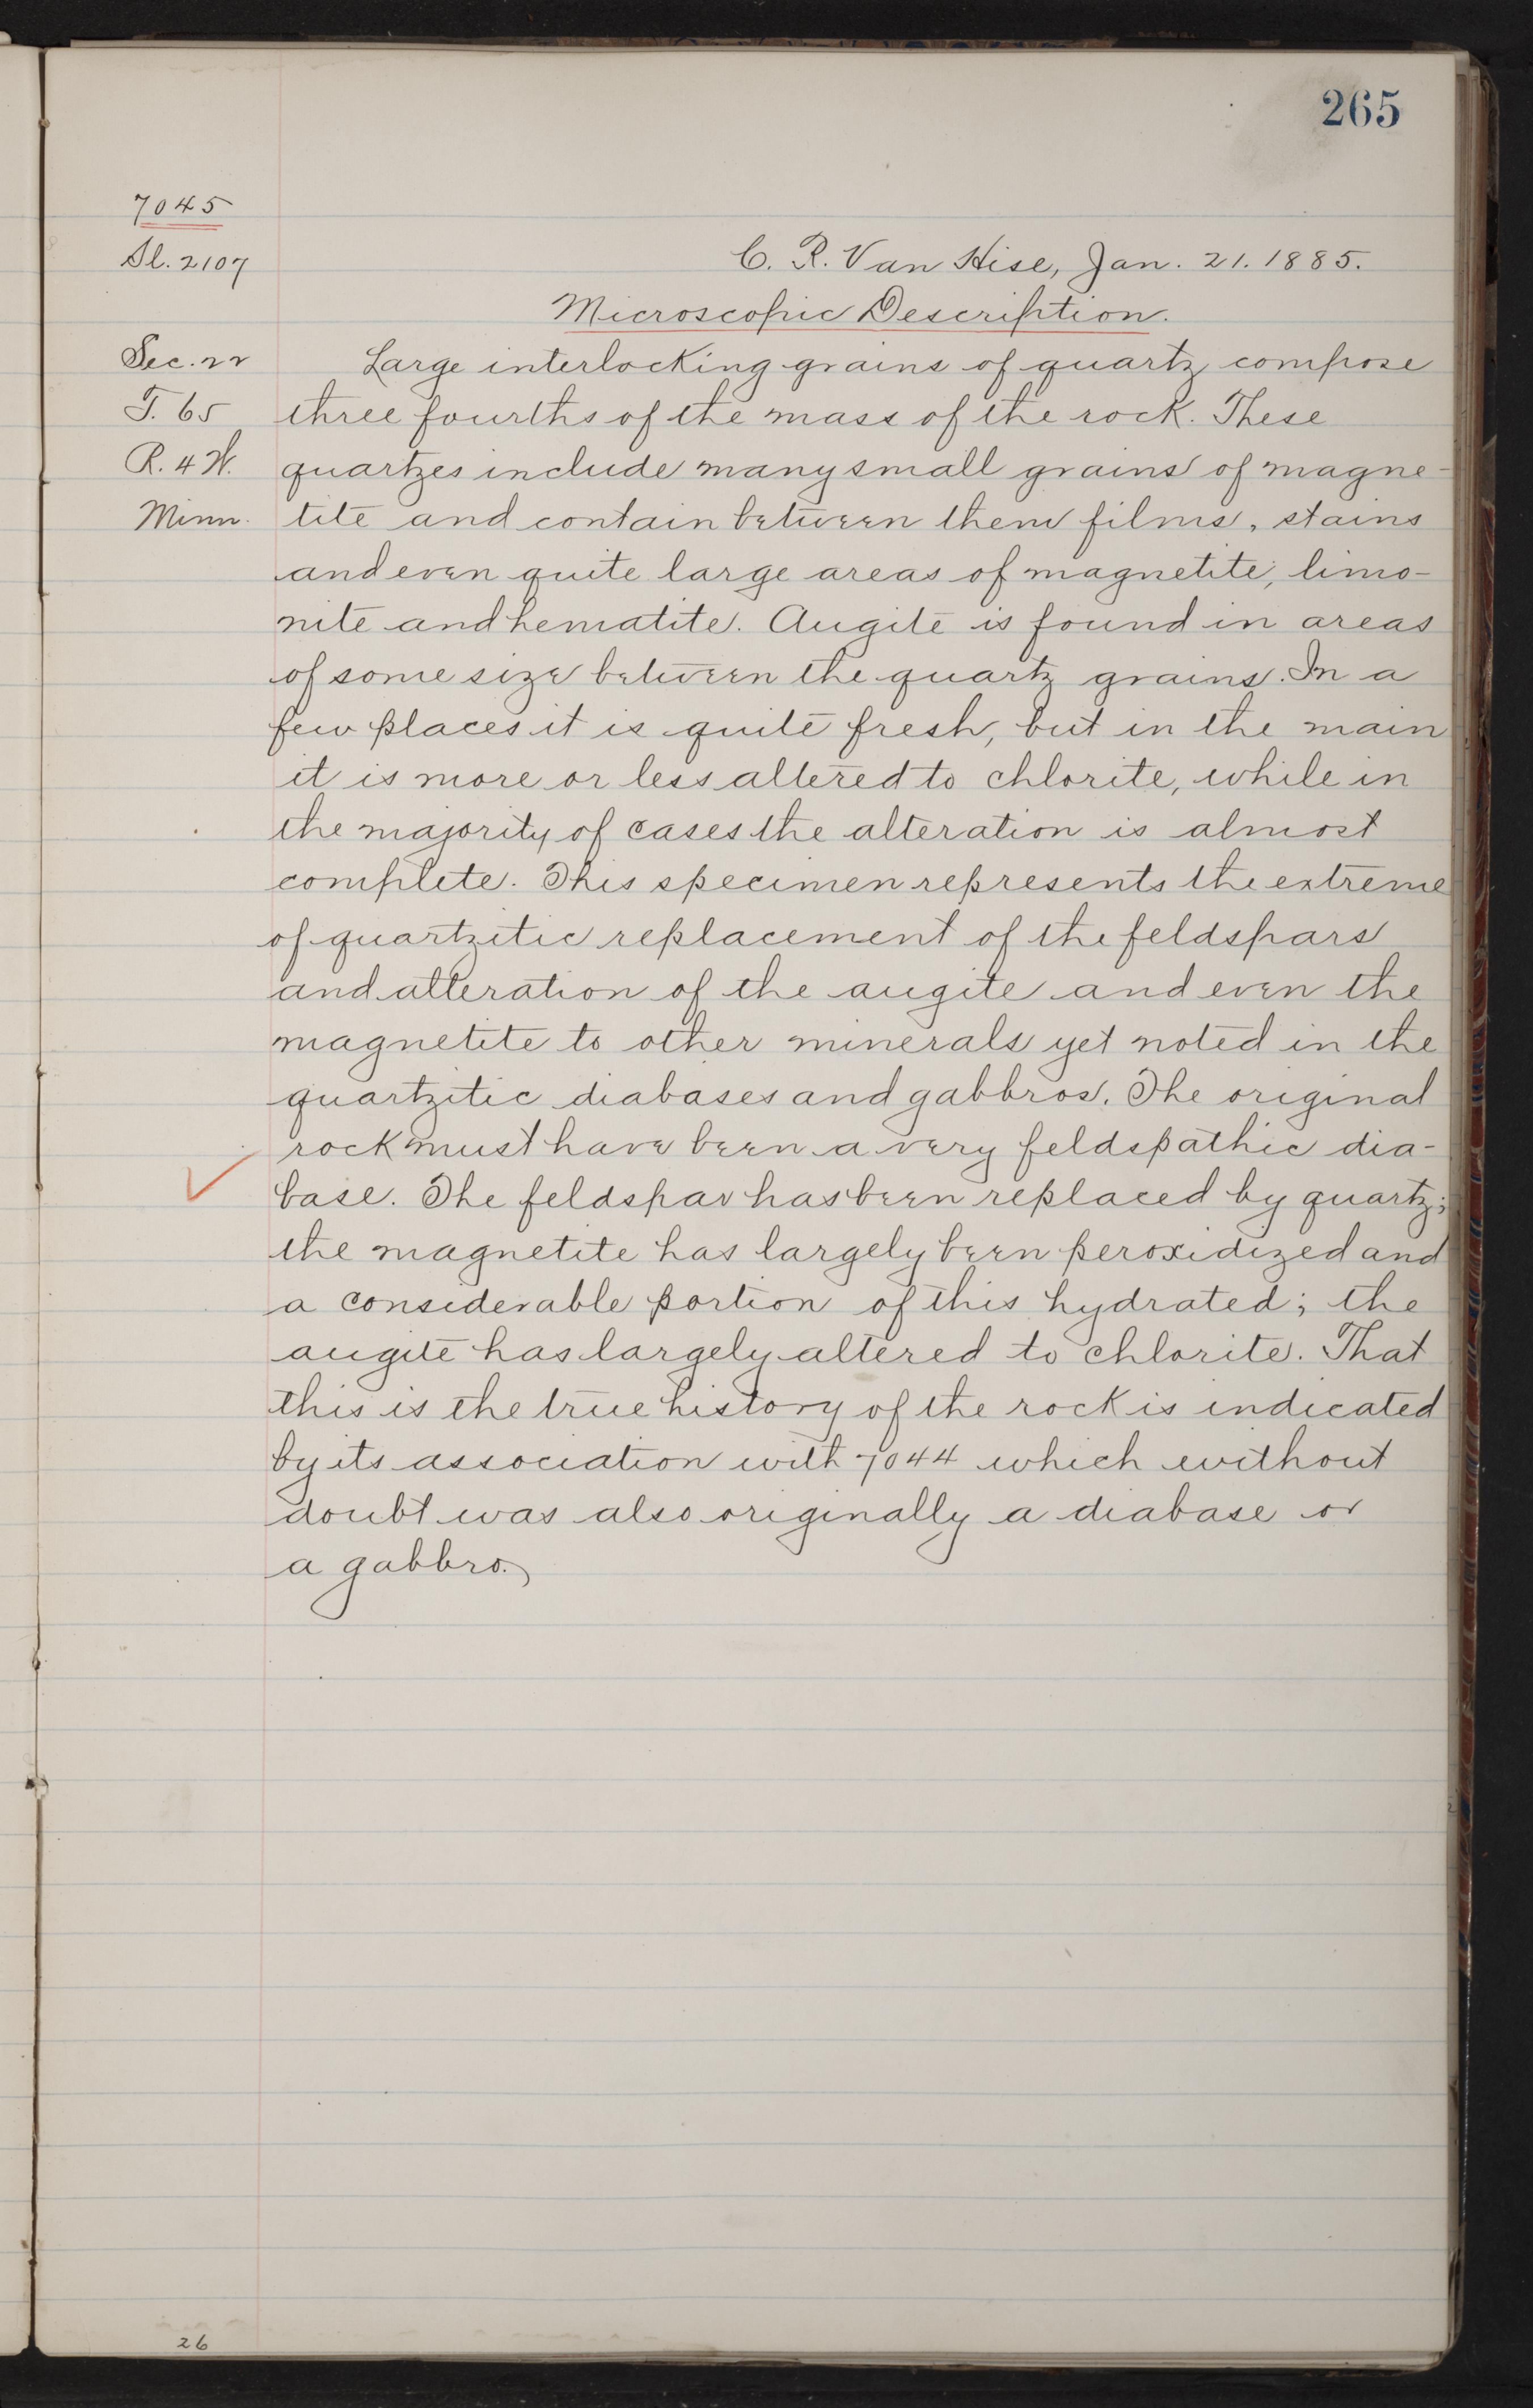 265
7045
Sl. 2107
C. R. Van Hise, Jan. 21. 1885.
Microscopic Description.
Sec. 22
T. 65
R. 4 W.
Minn.
Large interlocking grains of quartz compose
three fourths of the mass of the rock. These
quartzes include many small grains of magne-
tite and contain between them films, stains
and even quite large areas of magnetite, limo-
nite and hematite. Augite is found in areas
of some size between the quartz grains. In a
few places it is quite fresh, but in the main
it is more or less altered to chlorite, while in
the majority of cases the alteration is almost
complete. This specimen represents the extreme
of quartzitic replacement of the feldspars
and alteration of the augite and even the
magnetite to other minerals yet noted in the
quartzitic diabases and gabbros. The original
rock must have been a very feldspathic dia-
base. The feldspar has been replaced by quartz;
the magnetite has largely been peroxidized and
a considerable portion of this hydrated; the
augite has largely altered to chlorite. That
this is the true history of the rock is indicated
by its association with 7044 which without
doubt was also originally a diabase or
a gabbro.
26